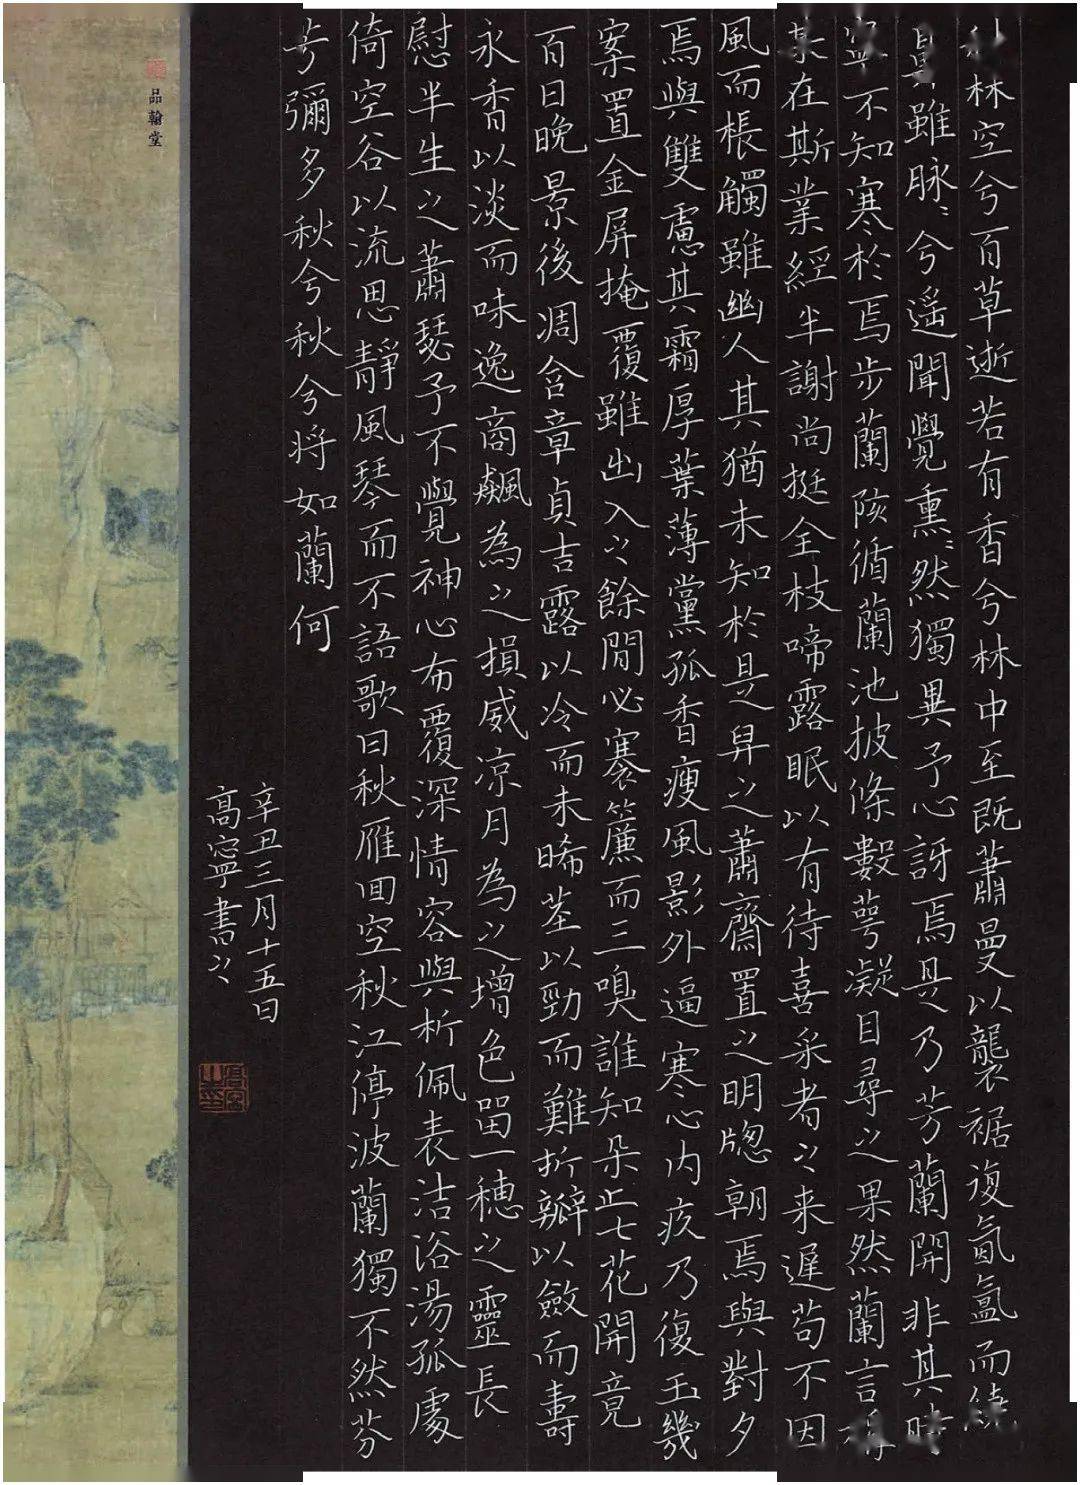 秋林空兮百草逝若有香兮林中至既蕭曼以襲裾復氤氳而繞
鼻雖脉〻兮遥聞覺熏〻然獨異予心訝焉是乃芳蘭開非其時
寧不知寒於焉步蘭陔循蘭池披條數萼凝目尋之果然蘭言
某在斯業經半謝尚挺全枝啼露眠以有待喜采者之来遲苟不因
風而棖觸雖幽人其猶未知於是舁之蕭齋置之明牕朝焉與對夕
焉與雙慮其霜厚葉薄黨孤香瘦風影外逼寒心内疚乃復玉幾
案置金屏掩覆雖出入之餘閒必褰簾而三嗅誰知朵止七花開竟
百日晚景後凋含章貞吉露以冷而未晞莖以勁而難折瓣以斂而壽
永香以淡而味逸商飆為之損威凉月為之增色留一穗之靈長
慰半生之蕭瑟予不覺神心布覆深情容與析佩表洁浴湯孤處
倚空谷以流思靜風琴而不語歌曰秋雁回空秋江停波蘭獨不然芬
芳彌多秋兮秋兮将如蘭何
辛丑三月十五日
高寧書之
品翰堂